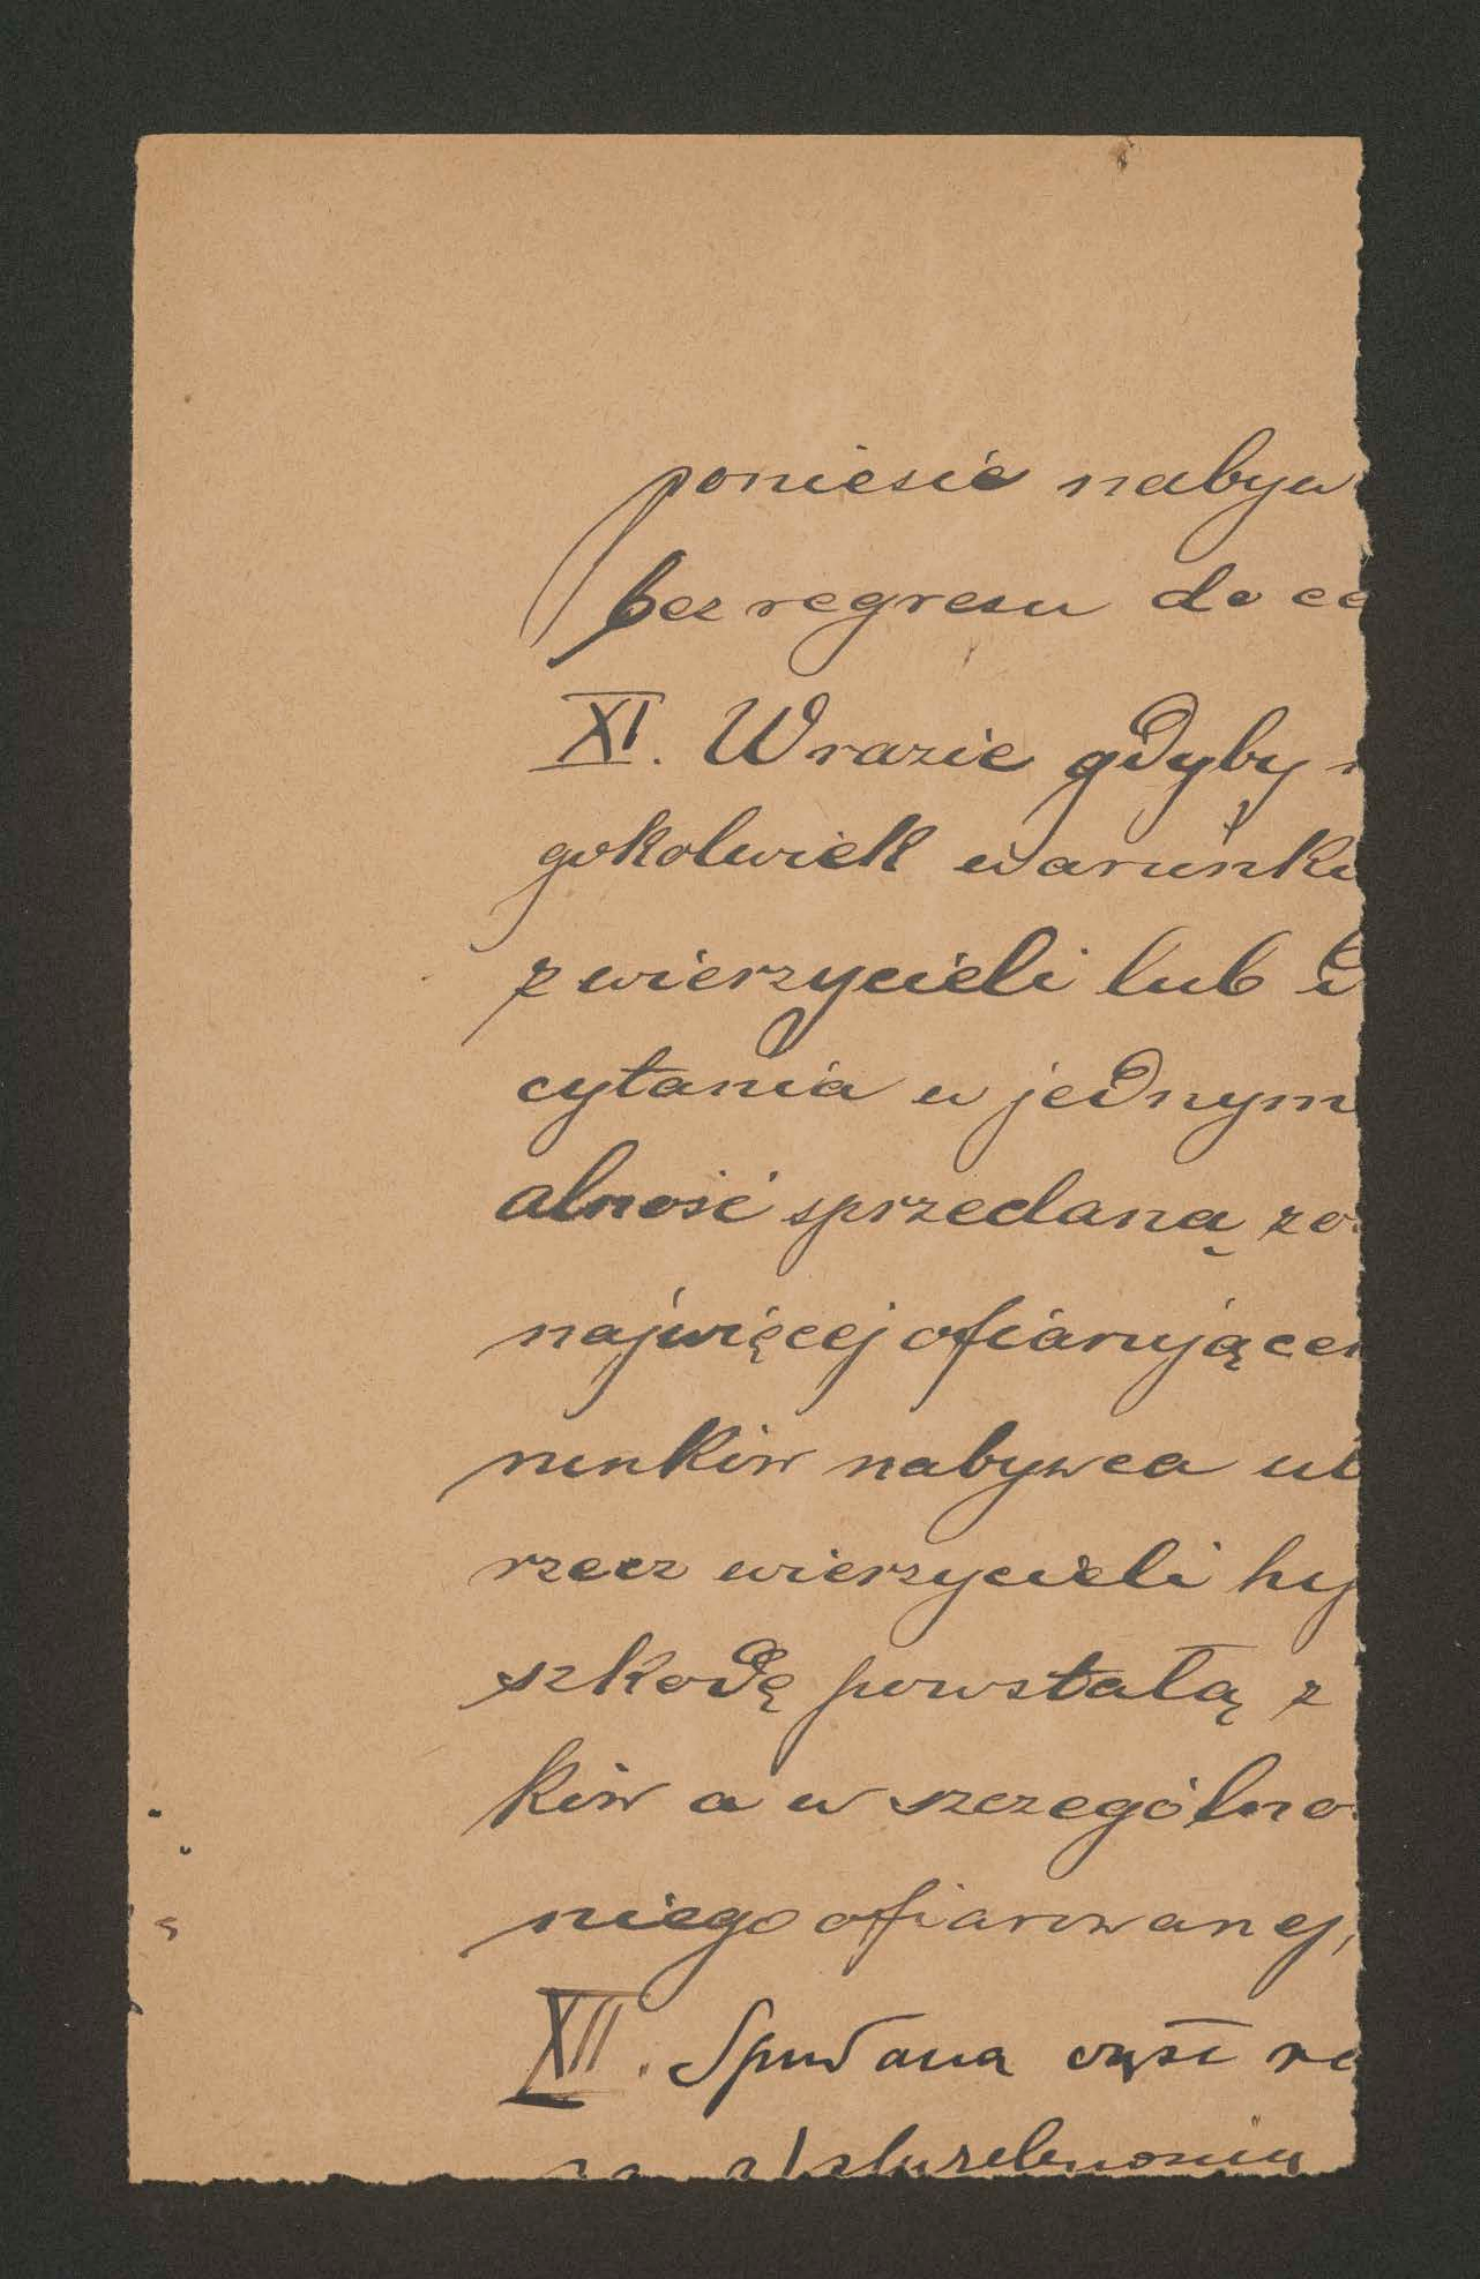 poniesie nabyw
bez regresu do ce
XI. W razie gdyby
gokolwiek warunku
z wierzycieli lub
cytania w jednym
alność sprzedaną zo
najwięcej ofiarującem
runków nabywca
rzecz wierzycieli hy
szkodę powstałą z
ków a w szczególno
niego ofiarowanej,
XII. Sprzedana część re